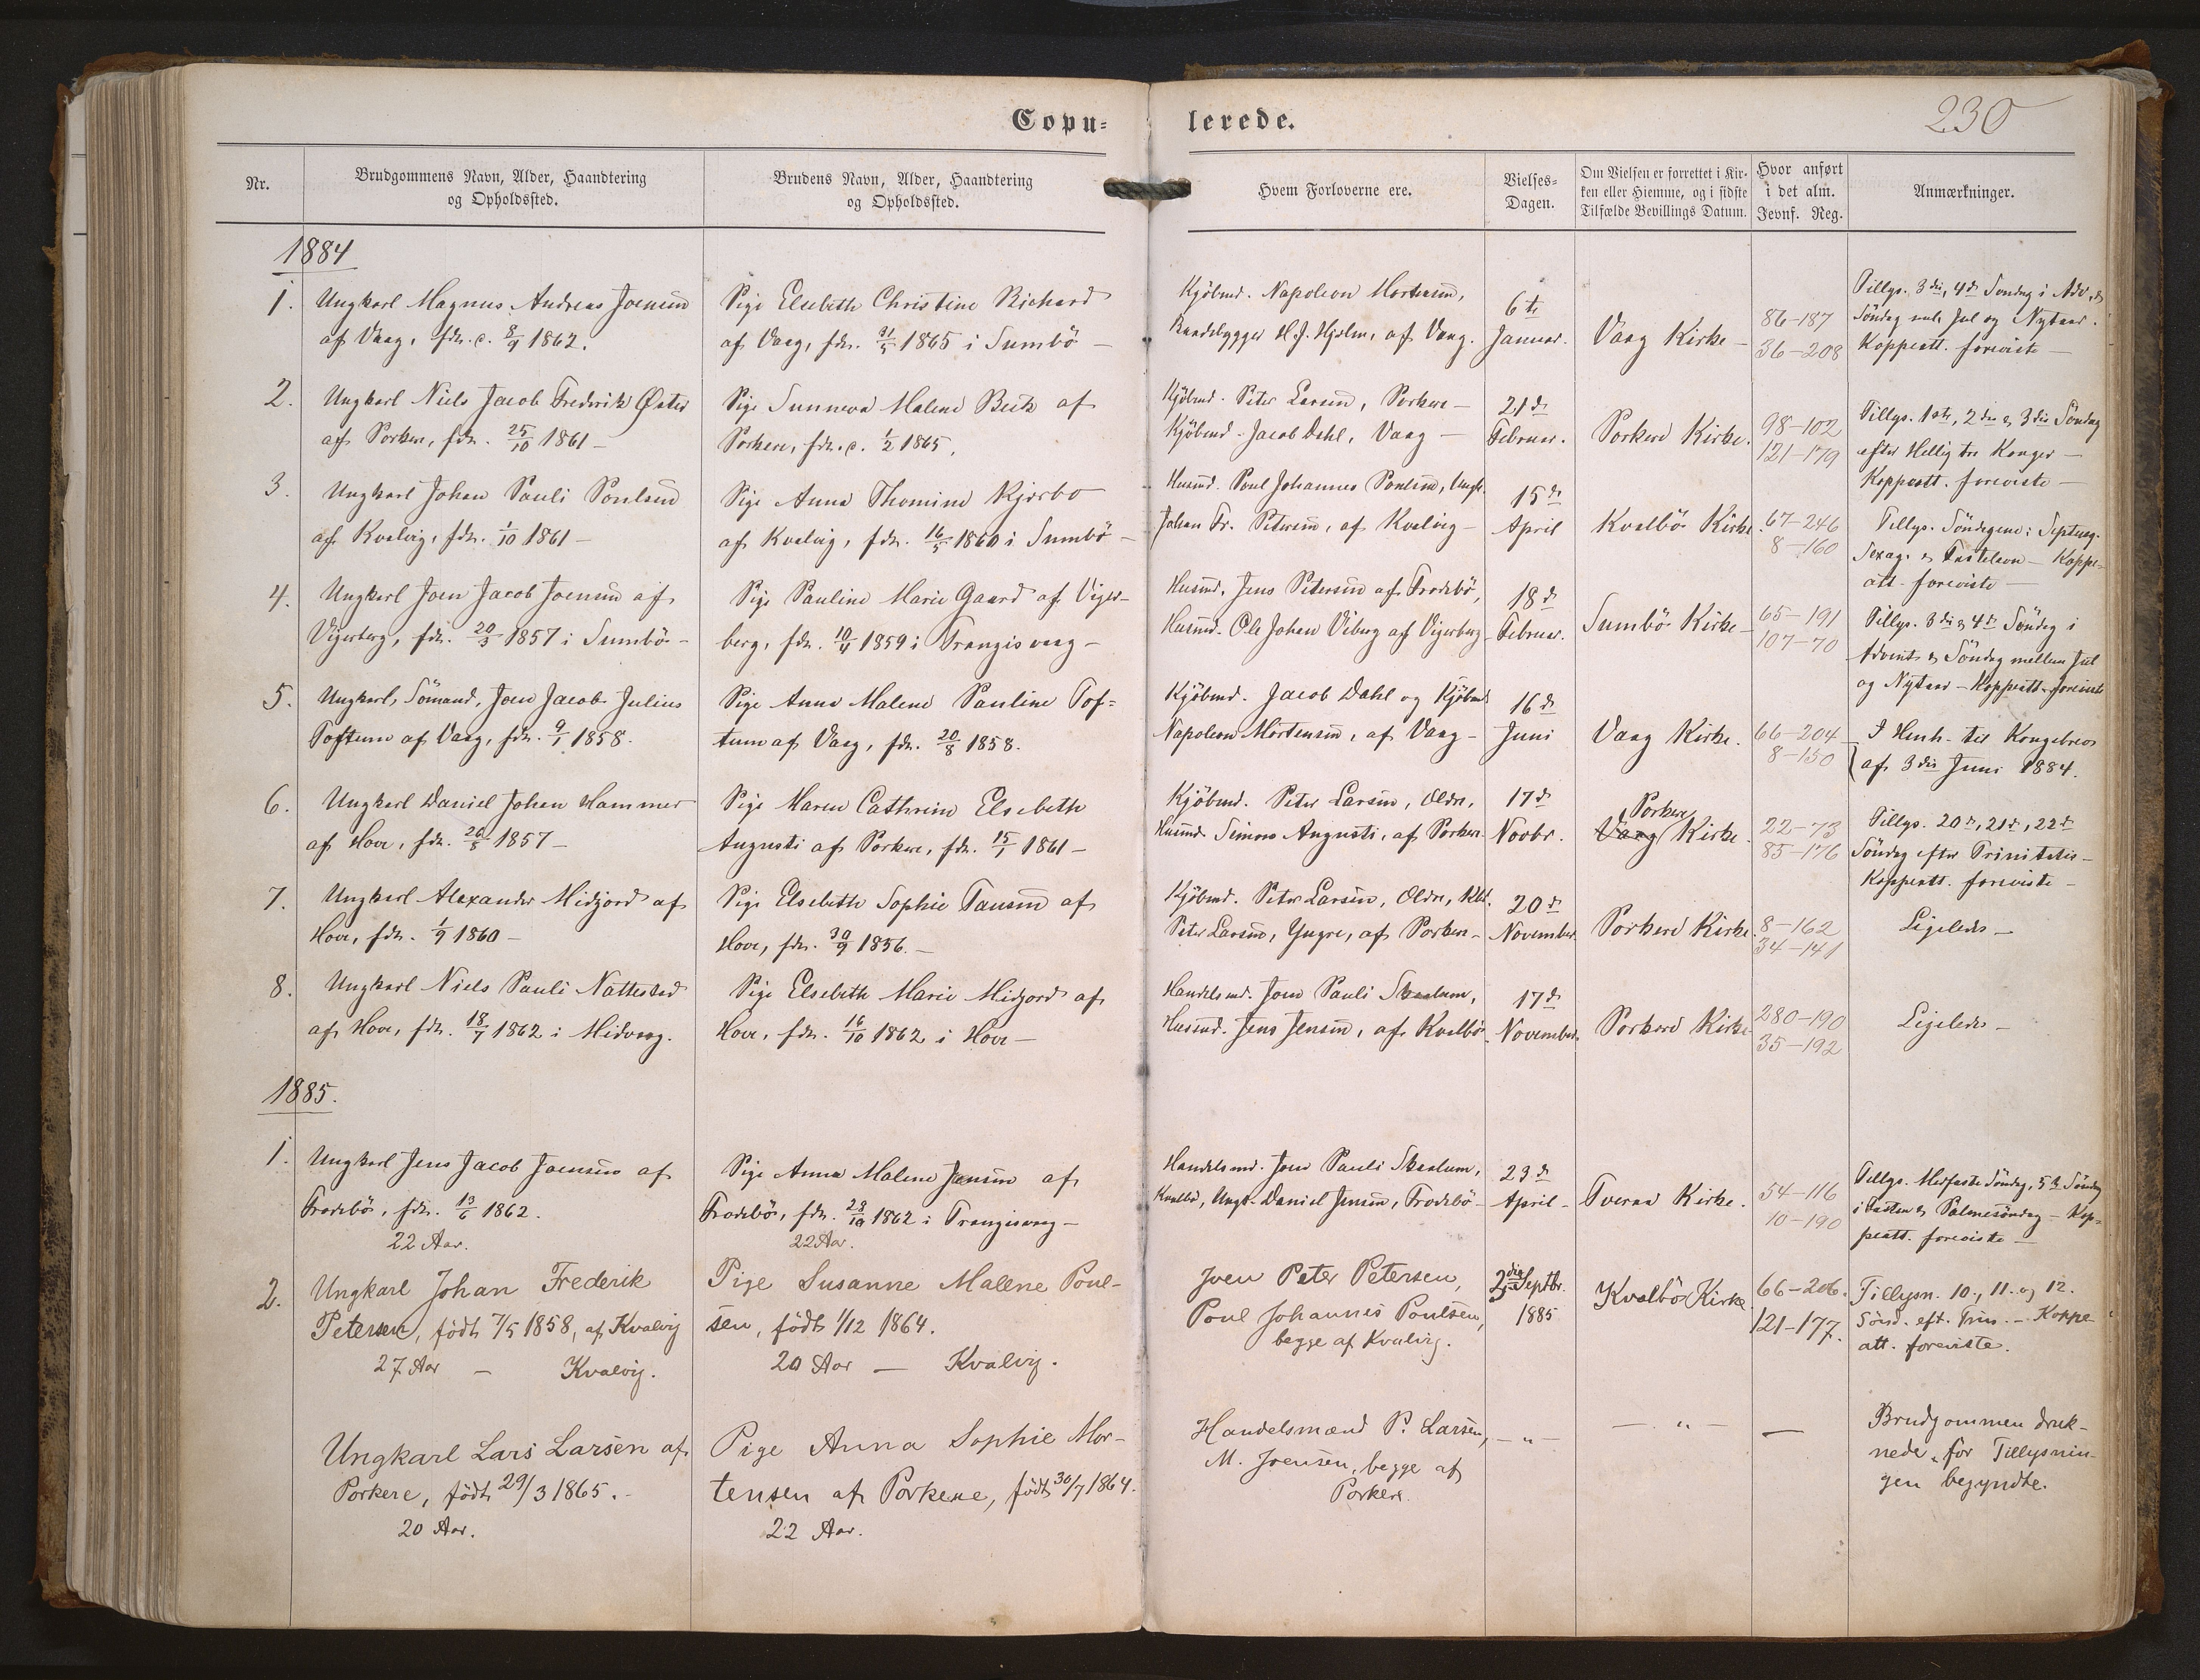 Copu-
lerede.
230
Nr.
Brudgommens Navn, Alder, Haandtering
og Opholdssted.
Brudens Navn, Alder, Haandtering
og Opholdssted.
Hvem Forloverne ere.
Vielses-
Dagen.
Om Vielsen er forrettet i Kir-
ken eller Hiemme, og i sidste
Tilfælde Bevillings Datum.
Hvor anført
i det alm.
Jevnf. Reg.
Anmærkninger.
1884
1.
Ungkarl Magnus Andreas Joensen
af Vaag, fdt. c. 8/9 1862.
Pige Elsebeth Christine Richard
af Vaag, fdt. 31/5 1865 i Sumbö
Kjöbmd. Napoleon Mortensen,
Baadebygger H. J. Hjelm, af Vaag.
6te
Januar.
Vaag Kirke
86-187
36-208
Tillys. 3die, 4de Söndag i Adv., &
Söndag mel. Jul og Nytaar.
Koppeatt. foreviste
2.
Ungkarl Niels Jacob Frederik Øster
af Porkere, fdt. 25/10 1861
Pige Sunneva Malene Beck af
Porkere, fdt. c. 1/2 1865.
Kjöbmd. Peter Larsen, Porkere
Kjöbmd. Jacob Dahl, Vaag
21de
Februar.
Porkere Kirke.
98-102
121-179
Tillys. 1ste, 2den & 3die Söndag
efter Hellig tre Konger
Koppeatt. foreviste
3.
Ungkarl Johan Pauli Poulsen
af Kvalvig, fdt. 1/10 1861
Pige Anna Thomine Kjærbo
af Kvalvig, fdt. 16/5 1860 i Sumbö
Husmd. Poul Johannes Poulsen, Ungk.
Johan Fr. Petersen, af Kvalvig
15de
April
Kvalbö Kirke.
67-246
8-160
Tillys. Söndagene: Septuag.
Sexag. & Fastelavn - Koppe-
att. foreviste
4.
Ungkarl Joen Jacob Joensen af
Vigerberg, fdt. 20/3 1857 i Sumbö
Pige Pauline Marie Gaard af Viger-
berg, fdt. 10/4 1859 i Trangisvaag
Husmd. Jens Petersen af Frodebö,
Husmd. Ole Johan Viberg af Vigerberg
18de
Februar.
Sumbö Kirke
65-191
107-70
Tillys. 3die & 4de Söndag i
Advent & Söndag mellem Jul
og Nytaar - Koppeatt. foreviste
5.
Ungkarl, Sömand, Joen Jacob Julius
Toftum af Vaag, fdt. 9/1 1858.
Pige Anna Malene Pauline Tof-
tum af Vaag, fdt. 20/8 1858.
Kjöbmd. Jacob Dahl og Kjöbmd
Napoleon Mortensen, af Vaag
16de
Juni
Vaag Kirke.
66-204
8-150
I Henh. til Kongebrev
af 3die Juni 1884.
6.
Ungkarl Daniel Johan Hammer
af Hove, fdt. 26/8 1857
Pige Maren Cathrine Elsebeth
Augusti af Porkere, fdt. 15/1 1861
Kjöbmd. Peter Larsen, Oldre,
Husmd. Simon Augusti, af Porkere
17de
Novbr.
Porkere
Vaag Kirke.
22-73
85-176
Tillys. 20de, 21de, 22de
Söndag efter Trinitatis
Koppeatt. foreviste
7.
Ungkarl Alexander Midjord af
Hove, fdt. 1/9 1860
Pige Elsebeth Sophie Tausen af
Hove, fdt. 30/9 1856.
Kjöbmd. Peter Larsen, Oldre,
Peter Larsen, Yngre, af Porkere
20de
November
Porkere Kirke.
8-162
34-141
Ligeledes
8.
Ungkarl Niels Pauli Nattestad
af Hove, fdt. 18/7 1862 i Midvaag.
Pige Elsebeth Marie Midjord af
Hove, fdt. 16/10 1862 i Hove
Handelsmd. Joen Pauli Skaalum,
Husmd. Jens Jensen, af Kvalbö
17de
November
Porkere Kirke
280-190
35-192
Ligeledes
1885.
1.
Ungkarl Jens Jacob Joensen af
Frodebö, fdt. 13/6 1862.
22 Aar.
Pige Anna Malene Jensen af
Frodebö, fdt. 28/10 1862 i Trangisvaag
22 Aar.
Handelsmd. Joen Pauli Skaalum,
Kvalbö, Ungk. Daniel Jensen, Frodebö
23de
April
Tveraa Kirke.
54-116
10-190
Tillys. Midfaste Söndag, 5te Söndag
i Fasten & Palmesöndag - Kop-
peatt. foreviste
2.
Ungkarl Johan Frederik
Petersen, födt 7/5 1858, af Kvalvig
27 Aar - Kvalvig.
Pige Susanne Malene Poul-
sen, födt 1/12 1864.
20 Aar - Kvalvig.
Joen Peter Petersen,
Poul Johannes Poulsen,
begge af Kvalvig.
Septbr.
1885
Kvalbö Kirke.
66-206.
121-177.
Tillysn. 10., 11. og 12.
Sönd. eft. Trin. - Koppe
att. foreviste.
Ungkarl Lars Larsen af
Porkere, födt 29/3 1865.
20 Aar.
Pige Anna Sophie Mor-
tensen af Porkere, födt 30/7 1864.
22 Aar.
Handelsmænd P. Larsen,
M. Joensen, begge af
Porkere.
- „ -
- „ -
-
Brudgommen druk-
nede, för Tillysnin-
gen begyndte.